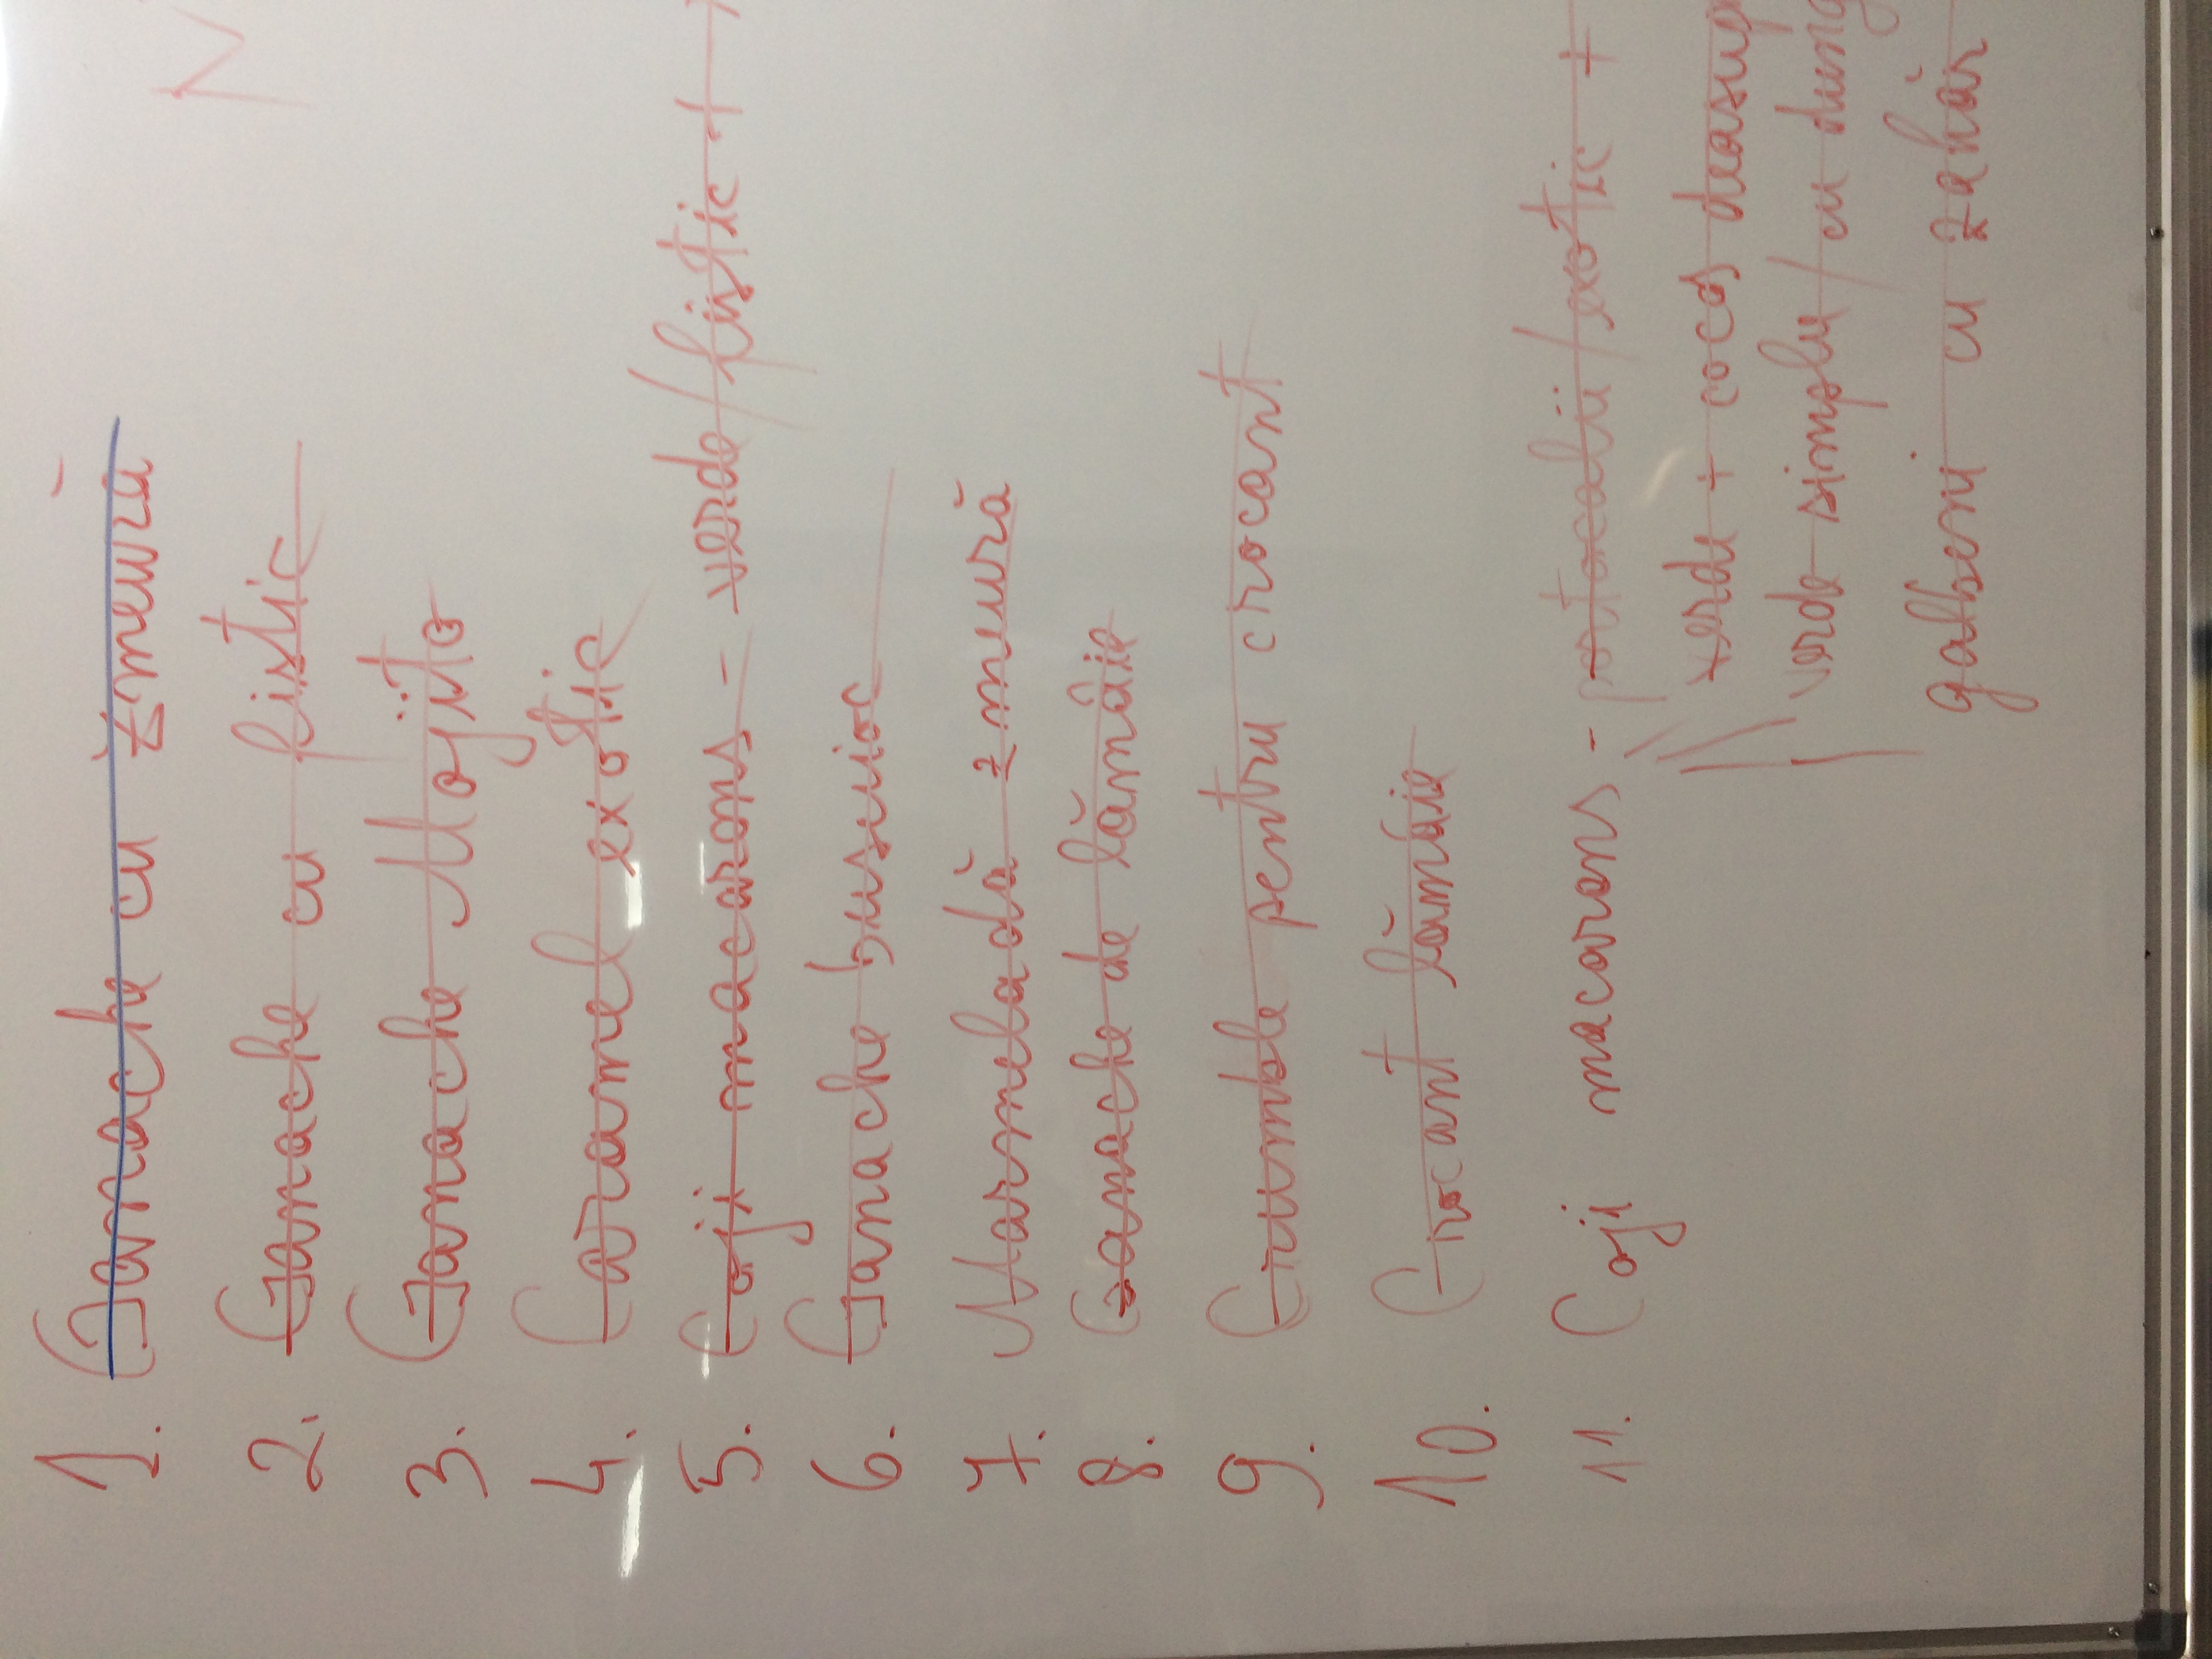 1. Ganache cu zmeură
N
2. Ganache cu fistic
3. Ganache Mojito
4. Caramel exotic
5. Coji macarons - verde/fistic +
6. Ganache busuioc
7. Marmeladă zmeură
8. Ganache de lămâie
9. Crumble pentru crocant
10. Crocant lămâie
11. Coji macarons - portocalii/exotic +
verde + cocos deasup
verde simplu/cu dung
galbeni cu zahăr